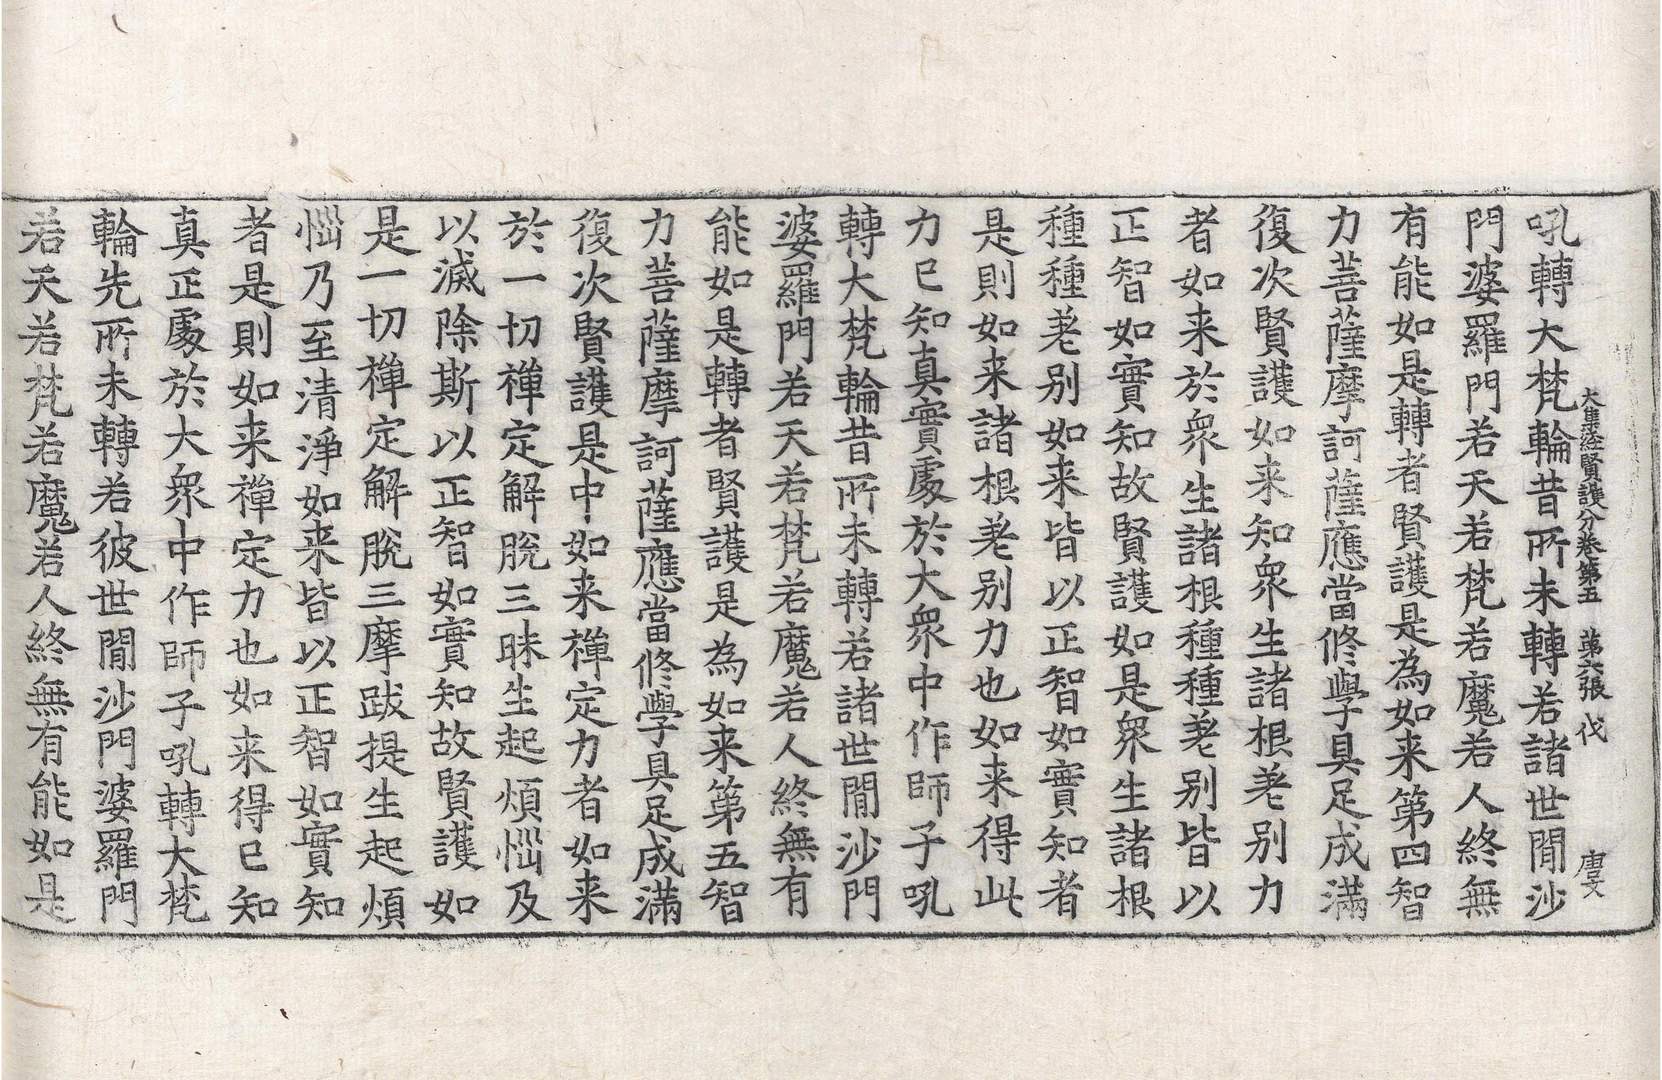 大集経賢護分卷第五　第六張　伐　唐文
吼轉大梵輪昔所未轉若諸世間沙
門婆羅門若天若梵若魔若人終無
有能如是轉者賢護是為如来第四智
力菩薩摩訶薩應當修學具足成滿
復次賢護如来知衆生諸根差别力
者如来於衆生諸根種種差别皆以
正智如實知故賢護如是衆生諸根
種種差别如来皆以正智如實知者
是則如来諸根差别力也如来得此
力已知真實處於大衆中作師子吼
轉大梵輪昔所未轉若諸世間沙門
婆羅門若天若梵若魔若人終無有
能如是轉者賢護是為如来第五智
力菩薩摩訶薩應當修學具足成滿
復次賢護是中如来禪定力者如来
於一切禪定解脫三昧生起煩惱及
以滅除斯以正智如實知故賢護如
是一切禪定解脫三摩跋提生起煩
惱乃至清淨如来皆以正智如實知
者是則如来禪定力也如来得已知
真正處於大衆中作師子吼轉大梵
輪先所未轉若彼世間沙門婆羅門
若天若梵若魔若人終無有能如是